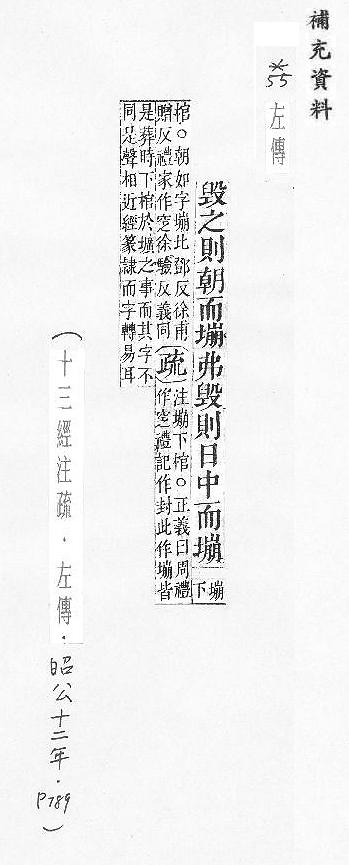 補充資料
※55 左傳
毀之則朝而塴弗毀則日中而塴 塴
下
棺○朝如字塴北鄧反徐甫
贈反禮家作窆彼驗反義同
疏
注塴下棺○正義曰周禮
作窆禮記作封此作塴皆
是葬時下棺於壙之事而其字不
同是聲相近經篆隸而字轉易耳
(十三經注疏.左傳.昭公十二年.P789)